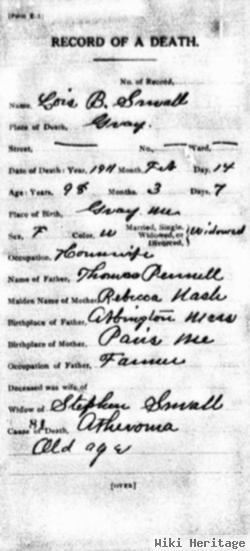 [Form E-1]
RECORD OF A DEATH.
No. of Record,
Name, Lois B. Small
Place of Death, Gray.
Street, No., Ward,
Date of Death: Year, 1911 Month, Feb Day, 14
Age: Years, 98 Months, 3 Days, 7
Place of Birth, Gray Me
Sex, F Color, W Married, Single, Widowed, or Divorced, Widowed
Occupation, Housewife
Name of Father, Thomas Pennell
Maiden Name of Mother, Rebecca Nash
Birthplace of Father, Abington Mass
Birthplace of Mother, Paris Me
Occupation of Father, Farmer
Deceased was wife of
Widow of Stephen Small
81
Cause of Death, Atheroma
Old age
[OVER]
Wiki Heritage